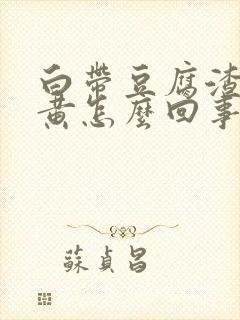 白帶豆腐渣
黃怎麼回事
蘇貞昌